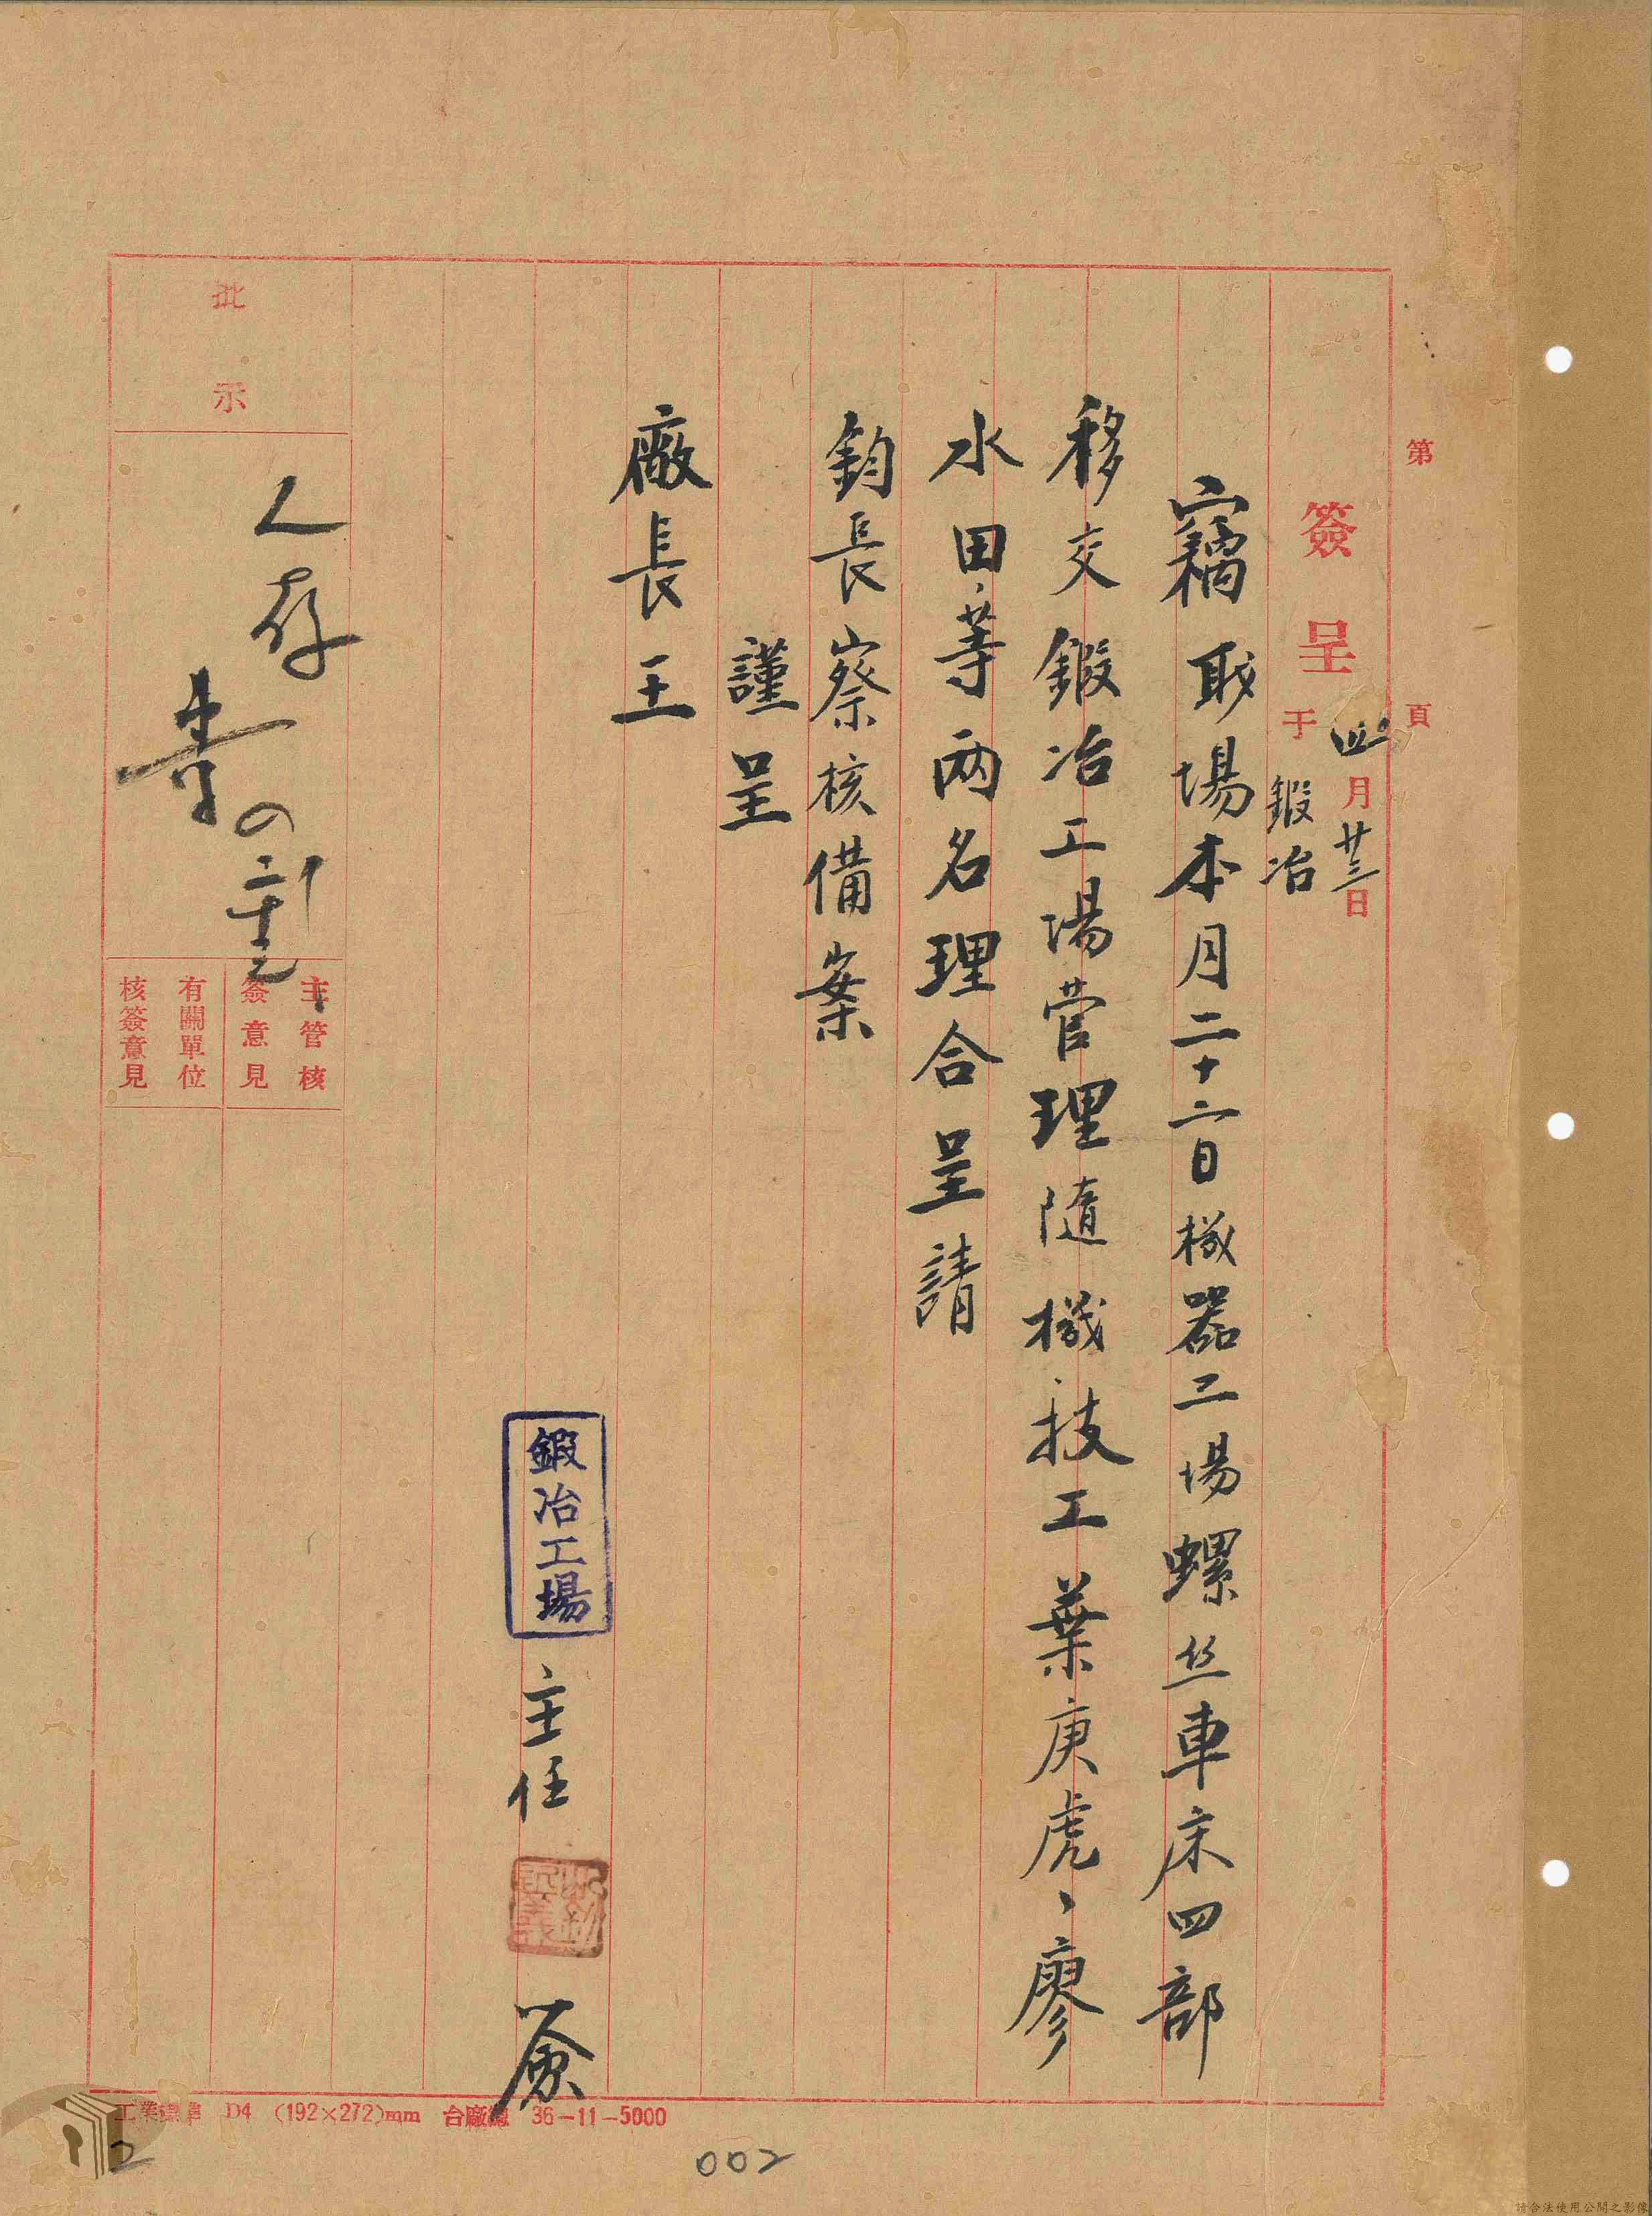 第　頁
簽呈 四月廿三日
于 鍛冶
竊職場本月二十二日機器工場螺丝車床四部
移交鍛冶工場管理隨機技工葉庚虎、廖
水田、等兩名理合呈請
鈞長察核備案
謹呈
廠長王
鍛冶工場 主任
批示
存
主管核簽意見
有關單位核簽意見
工業標準 D4 (192×272)mm 台廠總 36-11-5000
2
002
請合法使用公開之影像